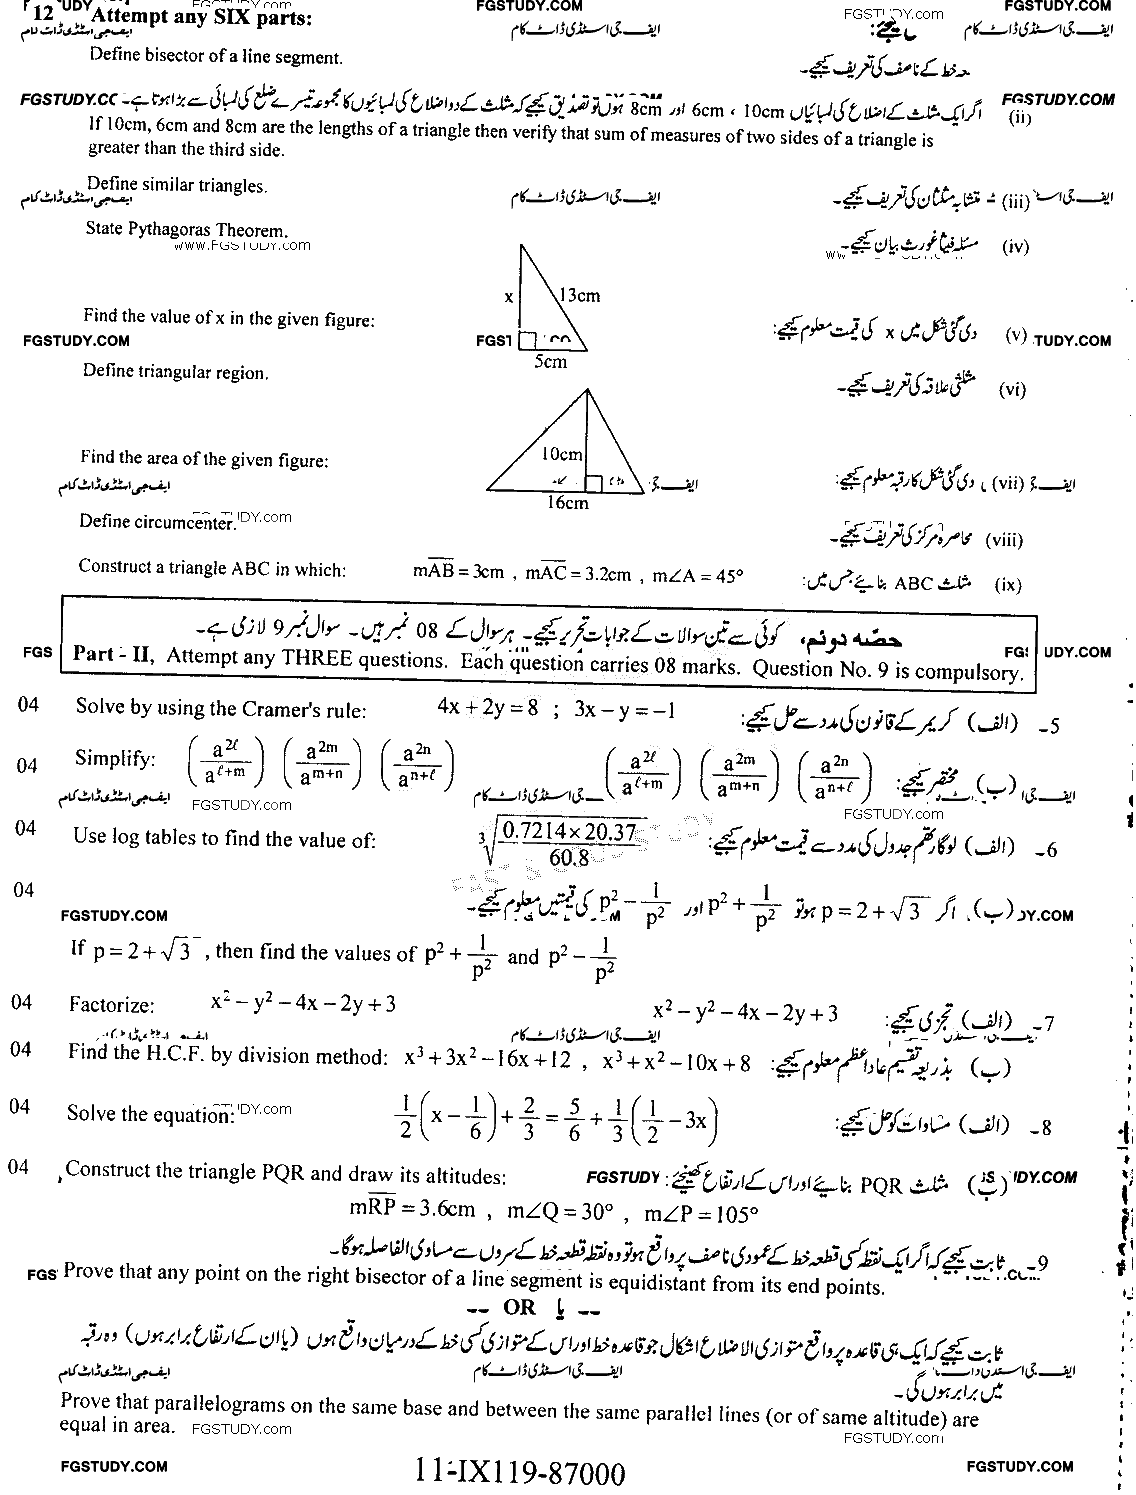 12 Attempt any SIX parts:
FGSTUDY.COM
FGSTUDY.com
FGSTUDY.COM
ایف جی اسٹڈی ڈاٹ کام
Define bisector of a line segment.
خط کے ناصف کی تعریف کیجیے۔
FGSTUDY.COM
(ii) اگر ایک مثلث کے اضلاع کی لمبائیاں 10cm ، 6cm اور 8cm ہوں تو تصدیق کیجیے کہ مثلث کے دو اضلاع کی لمبائیوں کا مجموعہ تیسرے ضلع کی لمبائی سے بڑا ہوتا ہے۔
If 10cm, 6cm and 8cm are the lengths of a triangle then verify that sum of measures of two sides of a triangle is
greater than the third side.
Define similar triangles.
(iii) متشابہ مثلثان کی تعریف کیجیے۔
ایف جی اسٹڈی ڈاٹ کام
State Pythagoras Theorem.
www.FGSTUDY.com
(iv) مسئلہ فیثاغورث بیان کیجیے۔
x 13cm
5cm
Find the value of x in the given figure:
(v) دی گئی شکل میں x کی قیمت معلوم کیجیے:
FGSTUDY.COM
Define triangular region.
(vi) مثلثی علاقہ کی تعریف کیجیے۔
10cm
16cm
Find the area of the given figure:
(vii) دی گئی شکل کا رقبہ معلوم کیجیے:
ایف جی اسٹڈی ڈاٹ کام
Define circumcenter.
(viii) محاصرہ مرکز کی تعریف کیجیے۔
Construct a triangle ABC in which: mAB = 3cm , mAC = 3.2cm , m∠A = 45°
(ix) مثلث ABC بنائیے جس میں:
حصّہ دوئم، کوئی سے تین سوالات کے جوابات تحریر کیجیے۔ ہر سوال کے 08 نمبر ہیں۔ سوال نمبر 9 لازمی ہے۔
Part - II, Attempt any THREE questions. Each question carries 08 marks. Question No. 9 is compulsory.
04 Solve by using the Cramer's rule: 4x + 2y = 8 ; 3x − y = −1
5۔ (الف) کریمر کے قانون کی مدد سے حل کیجیے:
04 Simplify: (a^{2ℓ}/a^{ℓ+m}) (a^{2m}/a^{m+n}) (a^{2n}/a^{n+ℓ})
(ب) مختصر کیجیے: (a^{2ℓ}/a^{ℓ+m}) (a^{2m}/a^{m+n}) (a^{2n}/a^{n+ℓ})
ایف جی اسٹڈی ڈاٹ کام
FGSTUDY.com
FGSTUDY.com
04 Use log tables to find the value of: ∛(0.7214×20.37 / 60.8)
6۔ (الف) لوگارتھم جدول کی مدد سے قیمت معلوم کیجیے:
04 (ب) اگر p = 2 + √3 ہو تو p² + 1/p² اور p² − 1/p² کی قیمتیں معلوم کیجیے۔
FGSTUDY.COM
If p = 2 + √3 , then find the values of p² + 1/p² and p² − 1/p²
04 Factorize: x² − y² − 4x − 2y + 3
7۔ (الف) تجزی کیجیے: x² − y² − 4x − 2y + 3
04 Find the H.C.F. by division method: x³ + 3x² − 16x + 12 , x³ + x² − 10x + 8
(ب) بذریعہ تقسیم عاداعظم معلوم کیجیے:
04 Solve the equation: 1/2 (x − 1/6) + 2/3 = 5/6 + 1/3 (1/2 − 3x)
8۔ (الف) مساوات کو حل کیجیے:
04 Construct the triangle PQR and draw its altitudes:
(ب) مثلث PQR بنائیے اور اس کے ارتفاع کھینچئے:
mRP = 3.6cm , m∠Q = 30° , m∠P = 105°
9۔ ثابت کیجیے کہ اگر ایک نقطہ کسی قطعہ خط کے عمودی ناصف پر واقع ہو تو وہ نقطہ قطعہ خط کے سروں سے مساوی الفاصلہ ہو گا۔
Prove that any point on the right bisector of a line segment is equidistant from its end points.
-- OR یا --
ثابت کیجیے کہ ایک ہی قاعدہ پر واقع متوازی الاضلاع اشکال جو قاعدہ خط اور اس کے متوازی کسی خط کے درمیان واقع ہوں (یا ان کے ارتفاع برابر ہوں) وہ رقبہ
میں برابر ہوں گی۔
ایف جی اسٹڈی ڈاٹ کام
Prove that parallelograms on the same base and between the same parallel lines (or of same altitude) are
equal in area. FGSTUDY.com
FGSTUDY.com
FGSTUDY.COM 11-IX119-87000 FGSTUDY.COM